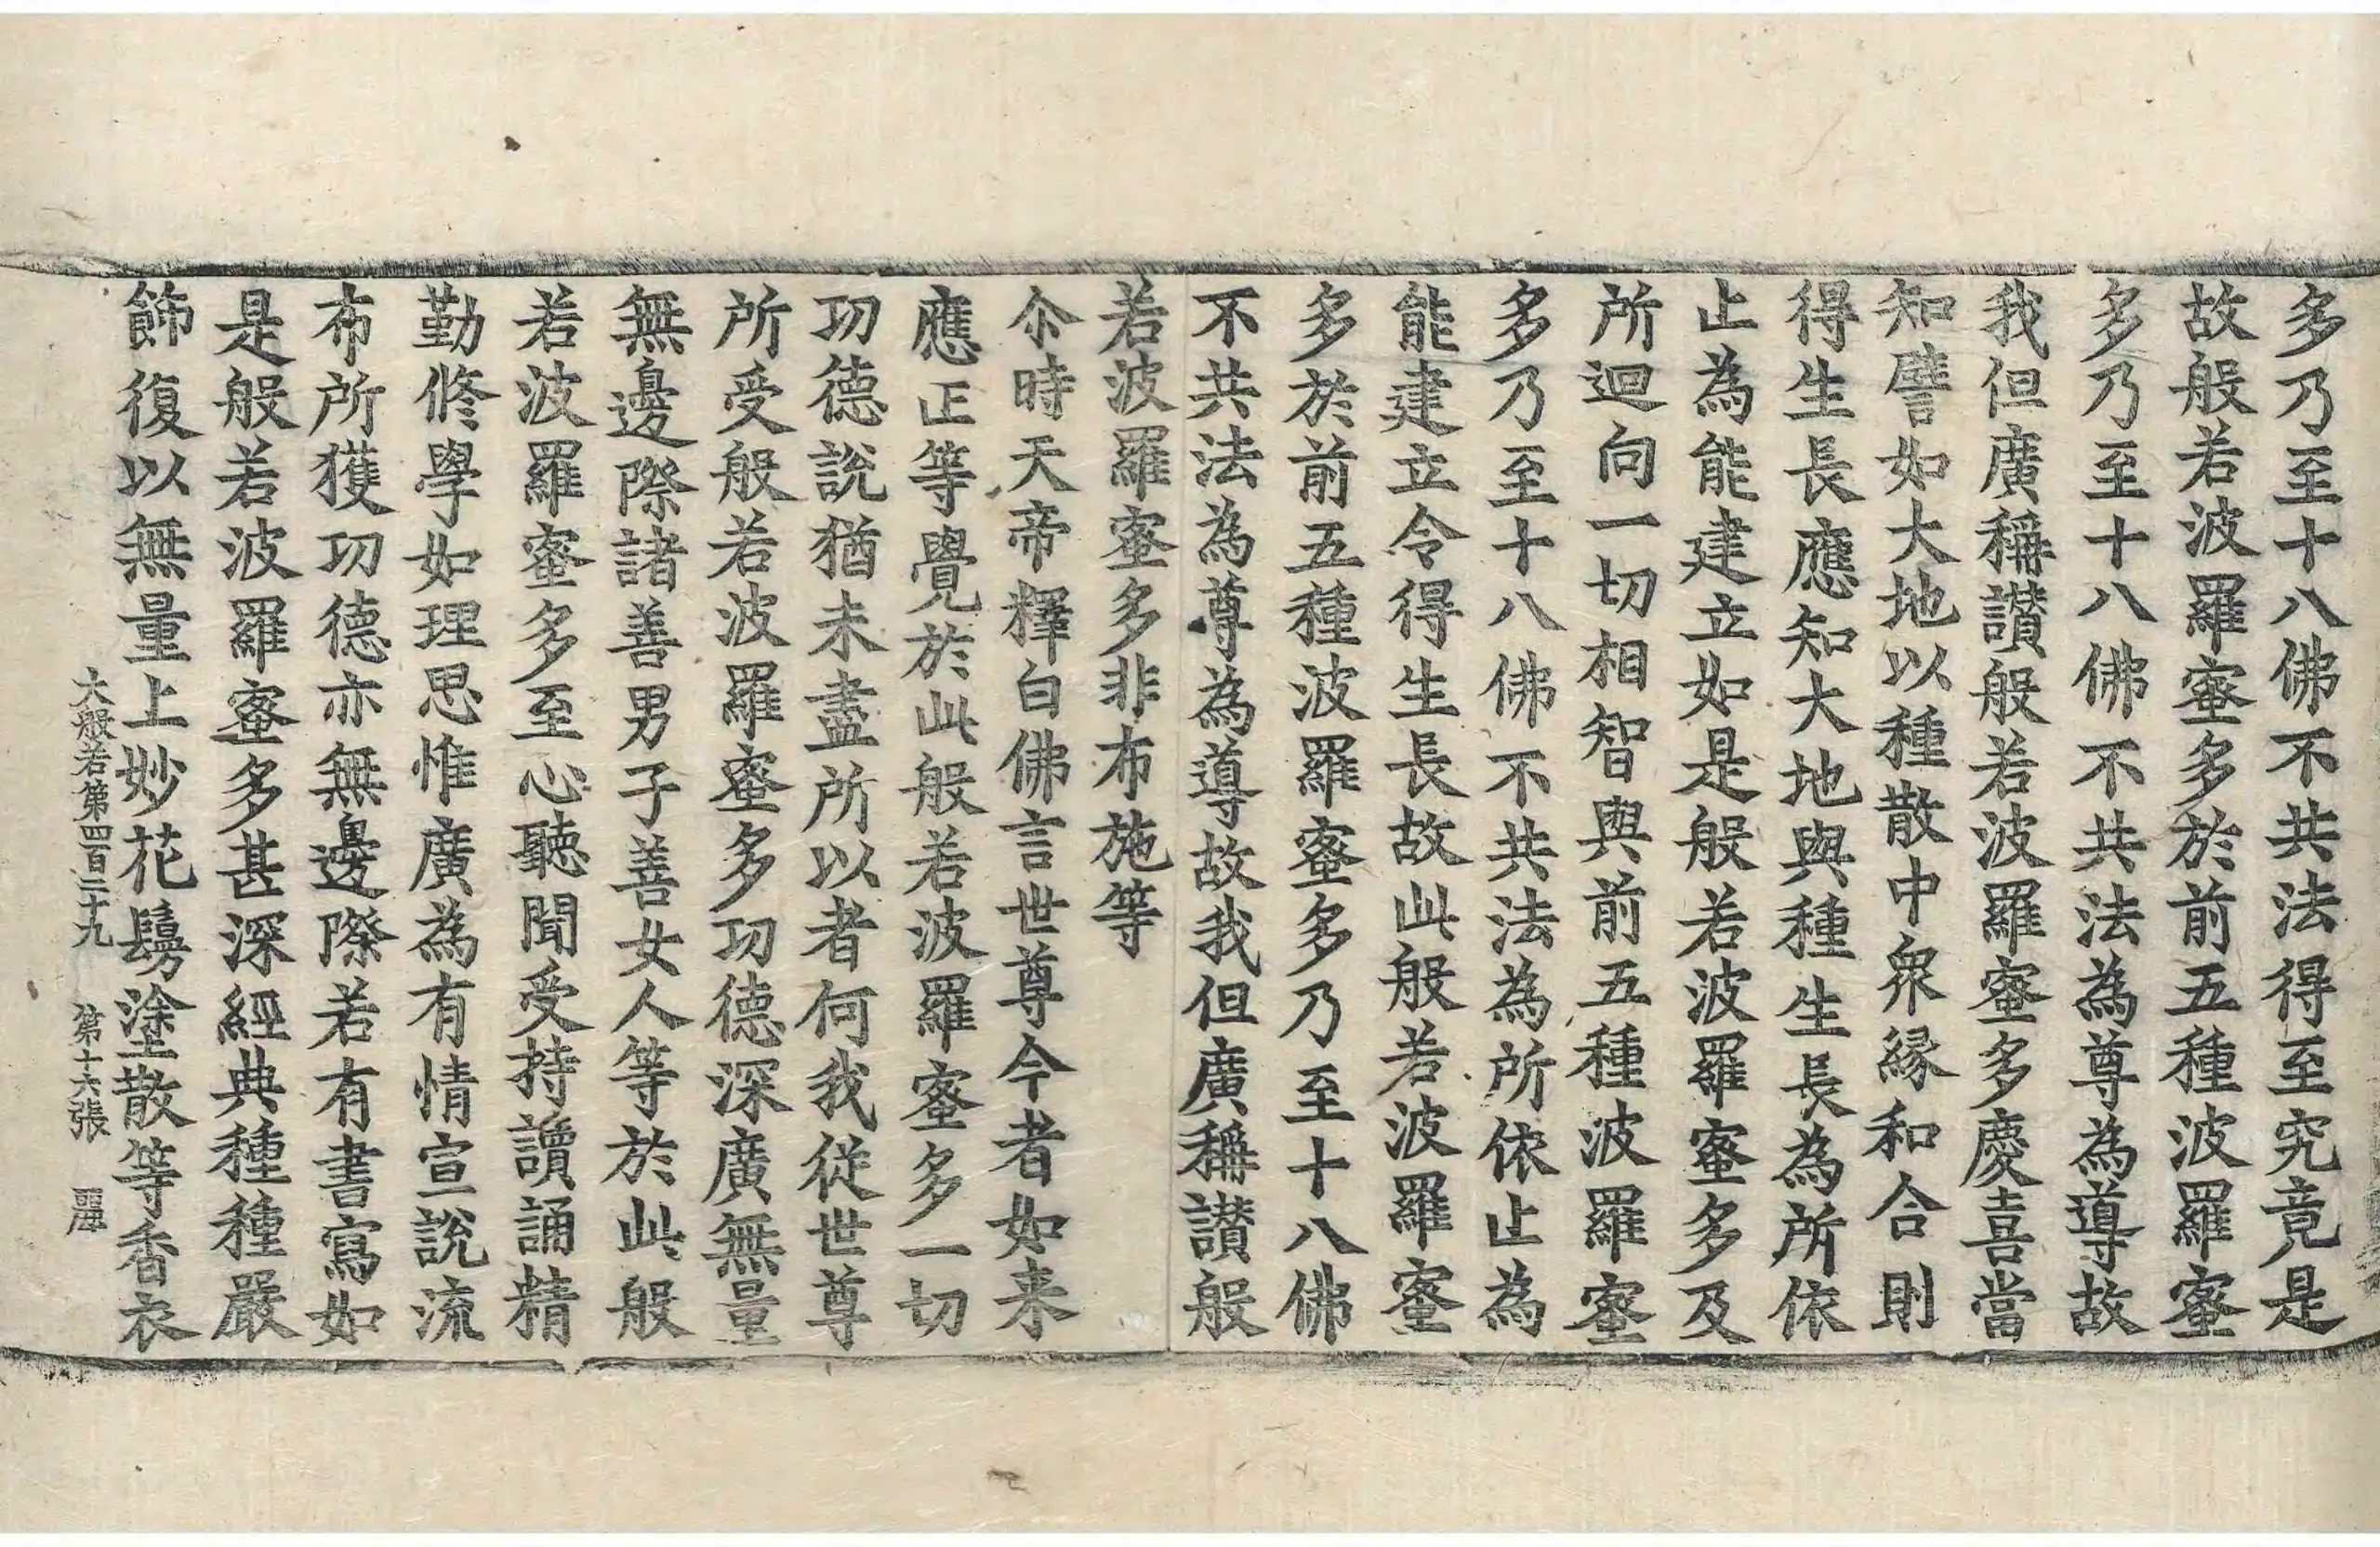 多乃至十八佛不共法得至究竟是
故般若波羅蜜多於前五種波羅蜜
多乃至十八佛不共法為尊為導故
我但廣稱讃般若波羅蜜多慶喜當
知譬如大地以種散中衆縁和合則
得生長應知大地與種生長為所依
止為能建立如是般若波羅蜜多及
所迴向一切相智與前五種波羅蜜
多乃至十八佛不共法為所依止為
能建立令得生長故此般若波羅蜜
多於前五種波羅蜜多乃至十八佛
不共法為尊為導故我但廣稱讃般
若波羅蜜多非布施等
尒時天帝釋白佛言世尊今者如来
應正等覺於此般若波羅蜜多一切
功德說猶未盡所以者何我從世尊
所受般若波羅蜜多功德深廣無量
無邊際諸善男子善女人等於此般
若波羅蜜多至心聽聞受持讀誦精
勤修學如理思惟廣為有情宣說流
布所獲功德亦無邊際若有書寫如
是般若波羅蜜多甚深經典種種嚴
飾復以無量上妙花鬘塗散等香衣
大般若第四百二十九 第十六張